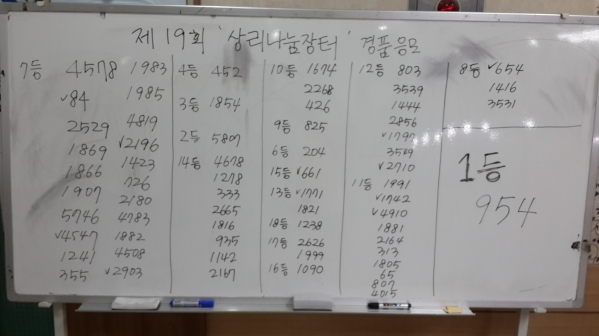 제 19회 '상리나눔장터' 경품응모
7등 4578 1983
✓84 1985
2529 4819
1869 ✓2196
1866 1423
1907 726
5746 2180
✓4547 4783
124 1882
355 4508
✓2903
4등 452
3등 1854
2등 5807
14등 4678
1278
333
2665
1816
935
1142
2167
10등 1674
2268
426
9등 825
6등 204
15등 ✓661
13등 ✓1771
1821
18등 1238
17등 2626
1999
16등 1090
12등 803
3539
1444
2856
✓1797
3589
✓2710
11등 1991
✓1742
✓4910
1881
2164
313
1805
65
807
4015
8등 ✓654
1416
3531
1등
954